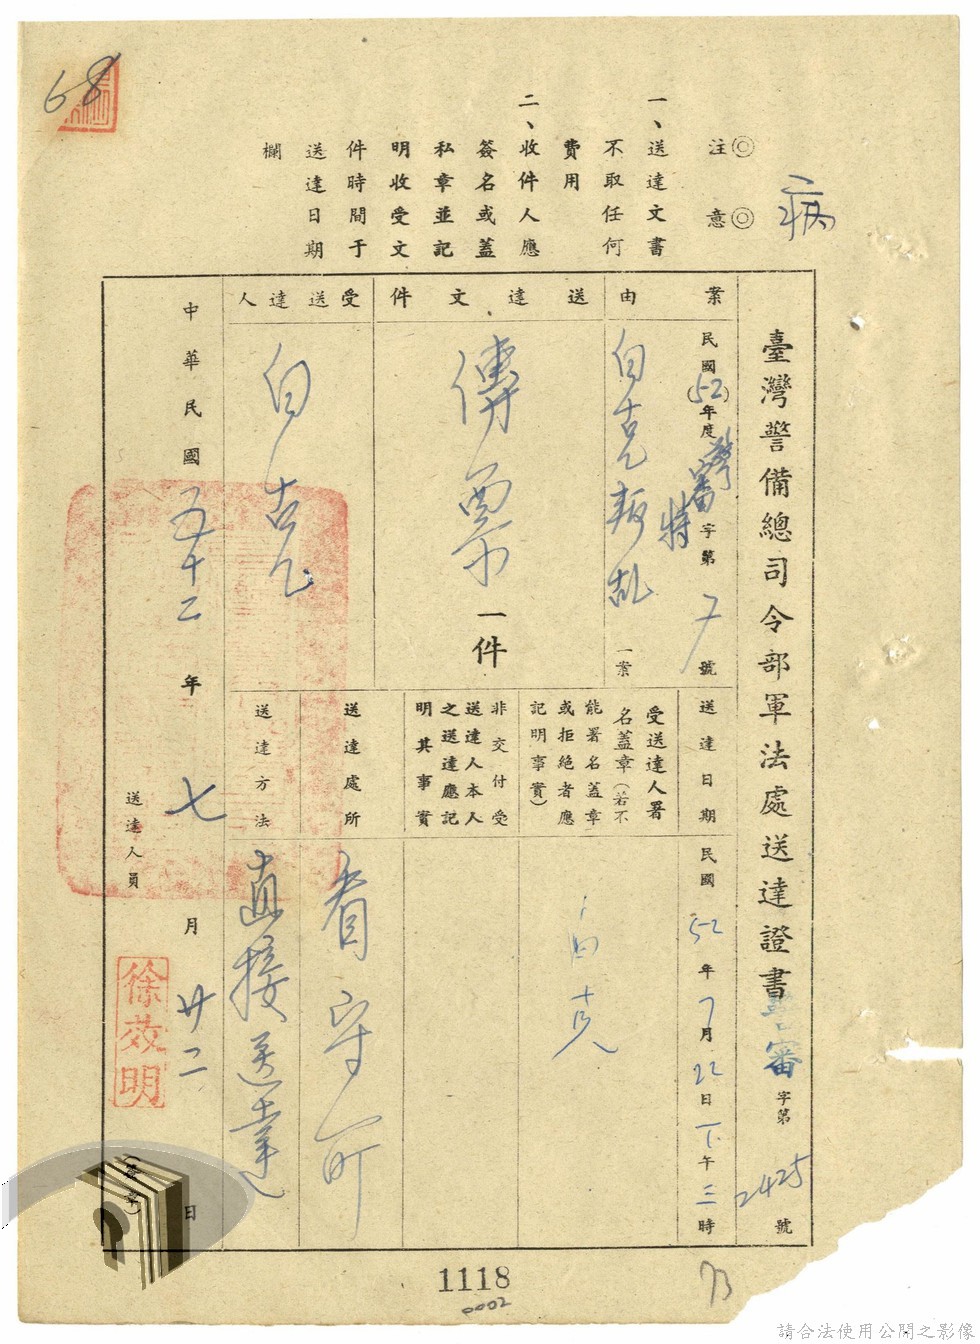 68
病
◎注意◎
一、送達文書
不取任何
費用
二、收件人應
簽名或蓋
私章並記
明收受文
件時間于
送達日期
欄
臺灣警備總司令部軍法處送達證書
警審字第2425號
案由
民國(52)年度警審特字第7號
白克叛亂一案
送達文件
傳票一件
受送達人
白克
送達日期
民國52年7月22日下午三時
受送達人署
名蓋章(若不
能署名蓋章
或拒絕者應
記明事實)
白克
非交付受
送達人本人
之送達應記
明其事實
送達處所
看守所
送達方法
直接送達
中華民國五十二年七月廿二日
送達人員
徐效明
(簽章)
1118
0002
73
請合法使用公開之影像